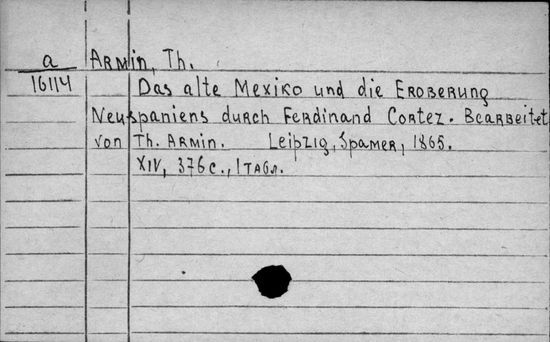 a Armin, Th.
16114 Das alte Mexiko und die Eroberung
Neuspaniens durch Ferdinand Cortez. Bearbeitet
von Th. Armin. Leipzig, Spamer, 1865.
XIV, 376 c., 1 табл.